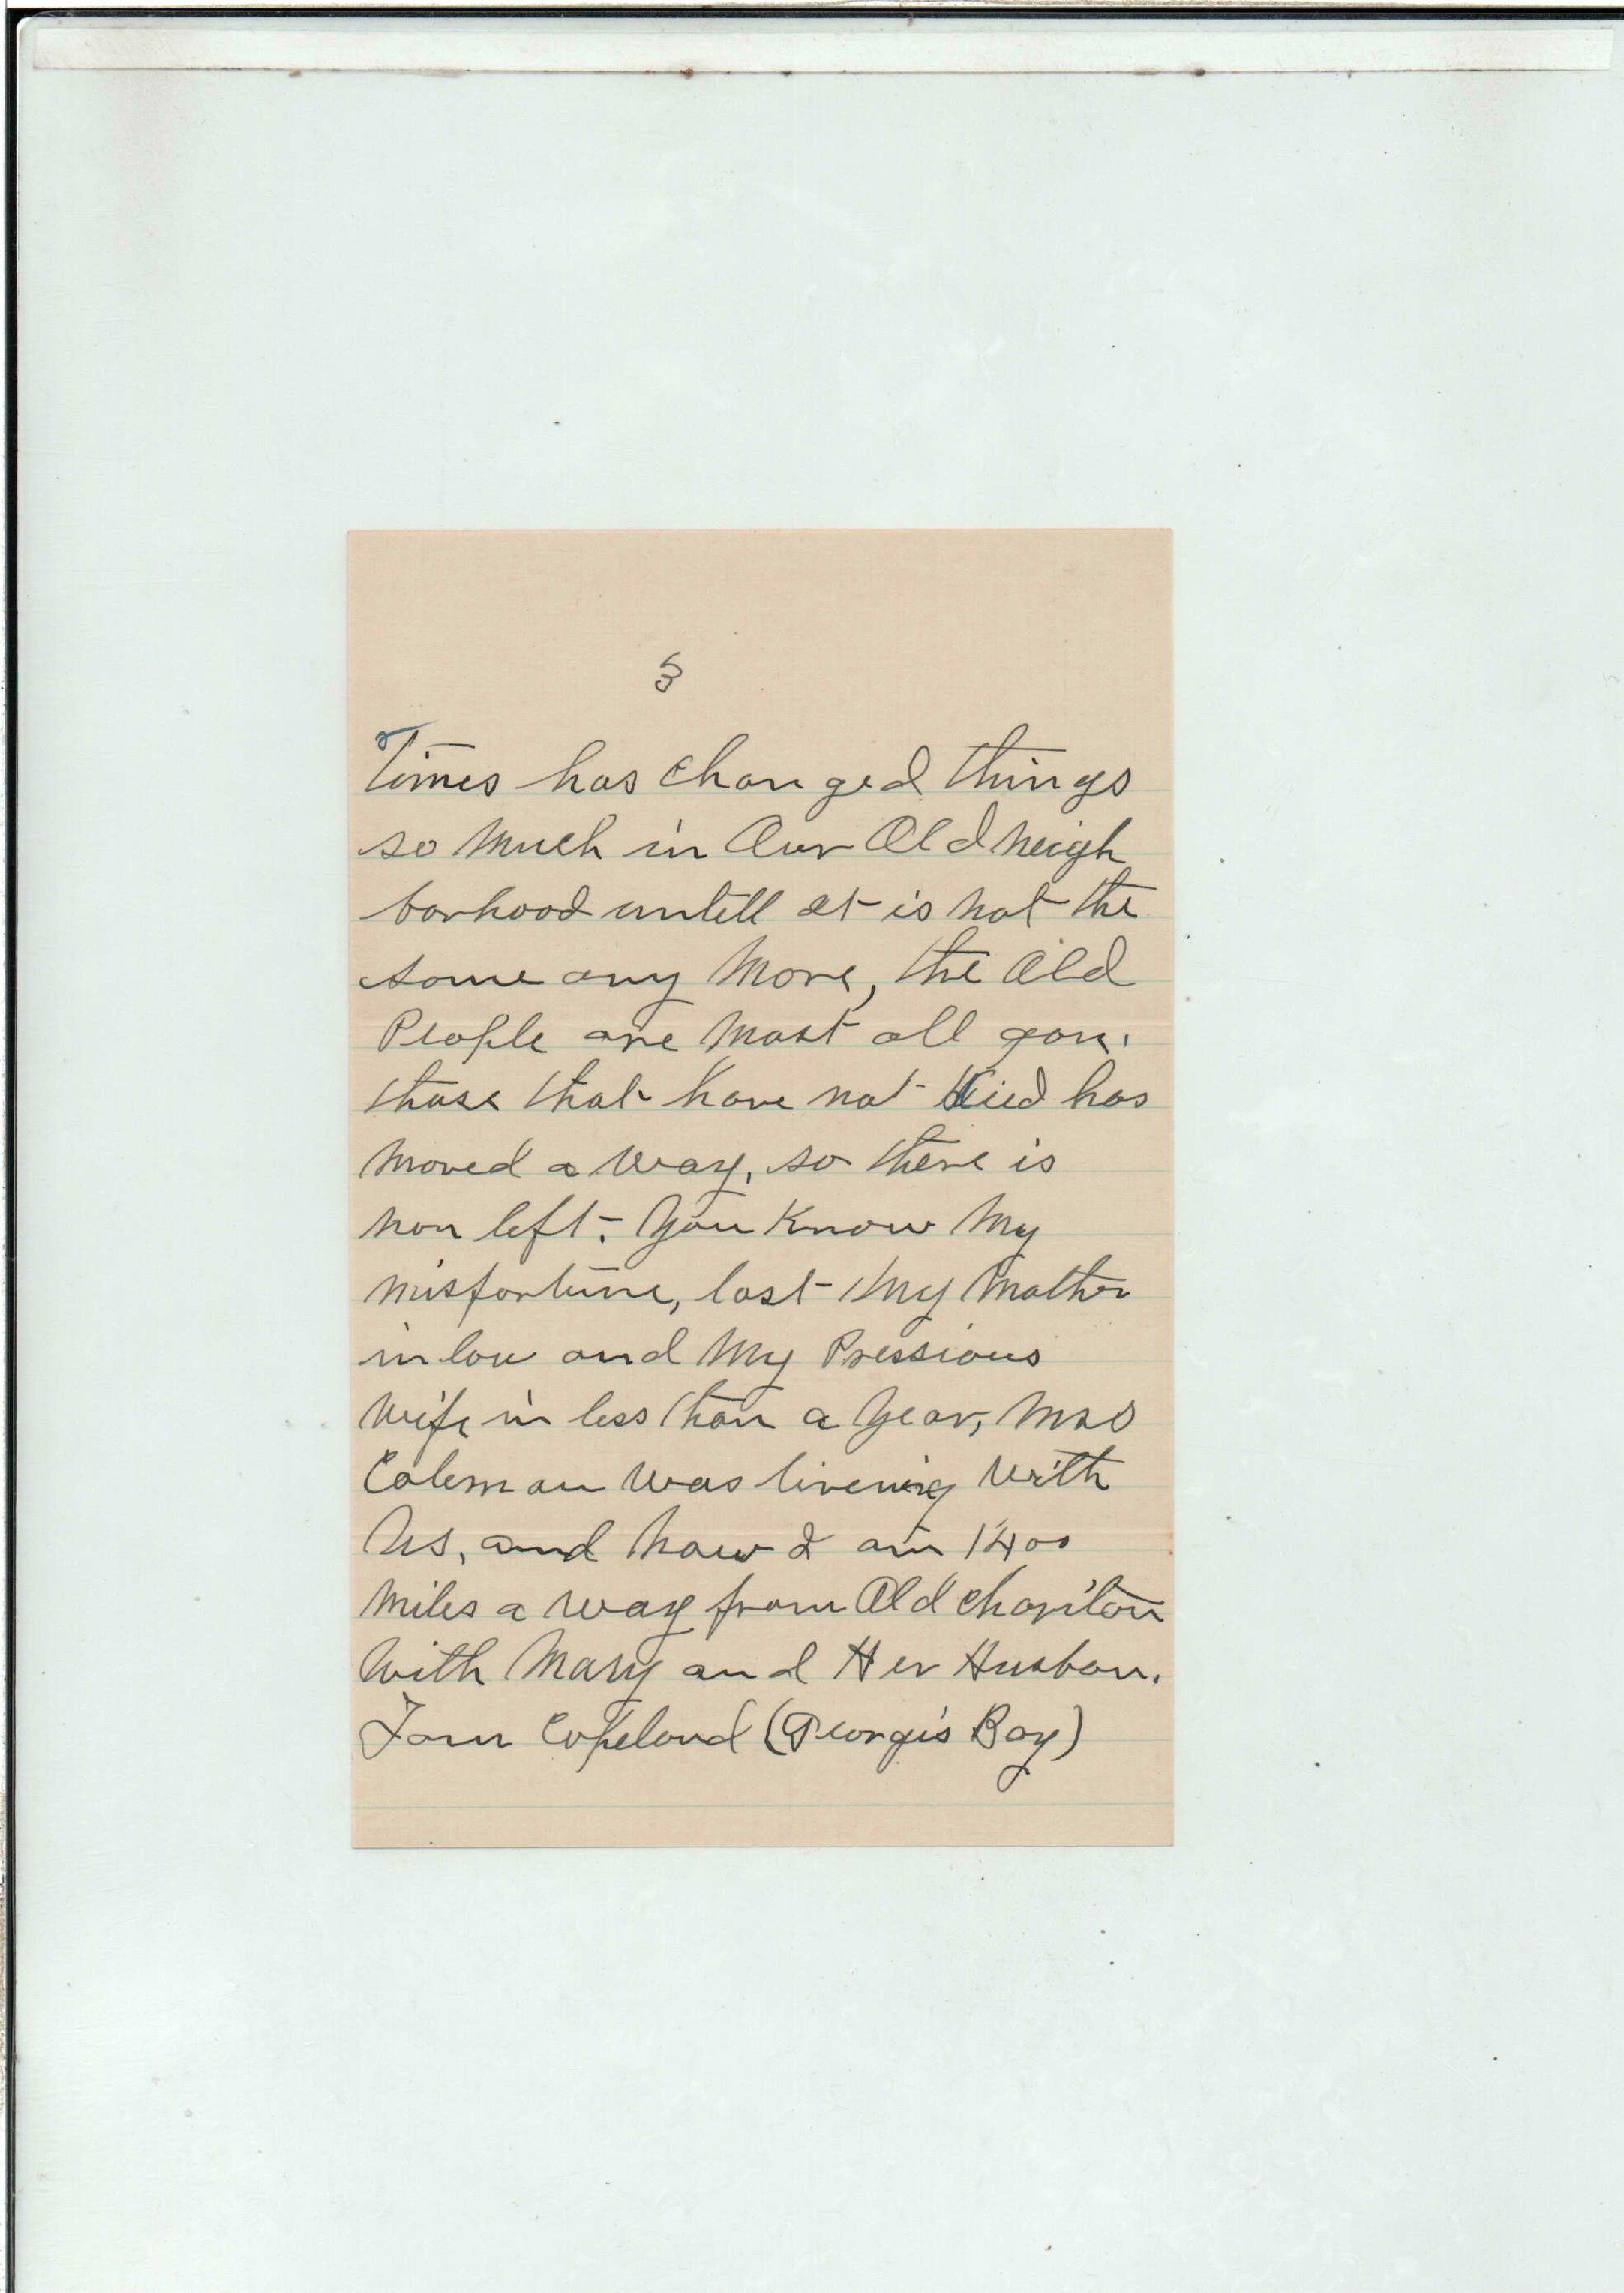 3
Times has changed things
so much in Our Old neigh
borhood untell it is not the
same any more, the Old
People are most all gon.
those that have not died has
moved a way, so there is
non left. You Know My
misfortune, lost My Mother
in law and My Pressious
wife in less than a year, Mrs
Coleman was liveing with
us, and now I am 1400
miles a way from Old Chariton
with Mary and Her Husban.
Tom Copeland (George's Boy)